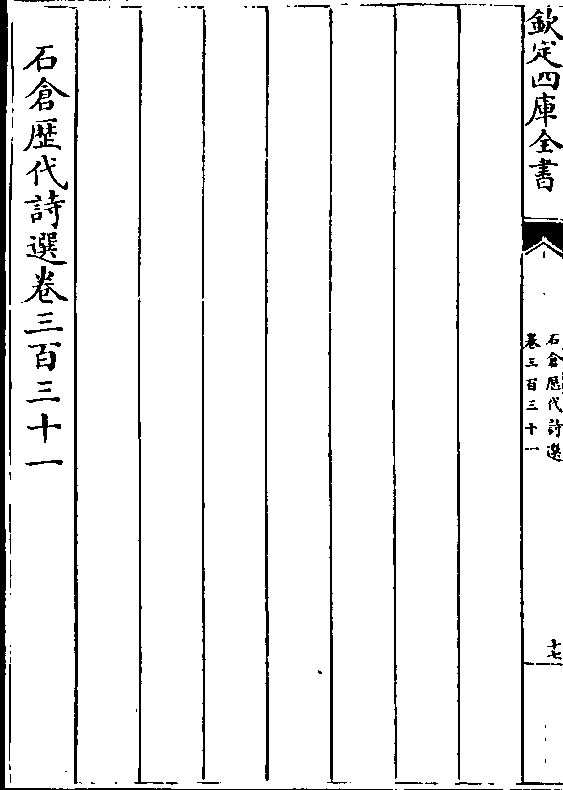 欽定四庫全書
石倉歴代詩選
卷三百三十一
十七
石倉歴代詩選卷三百三十一